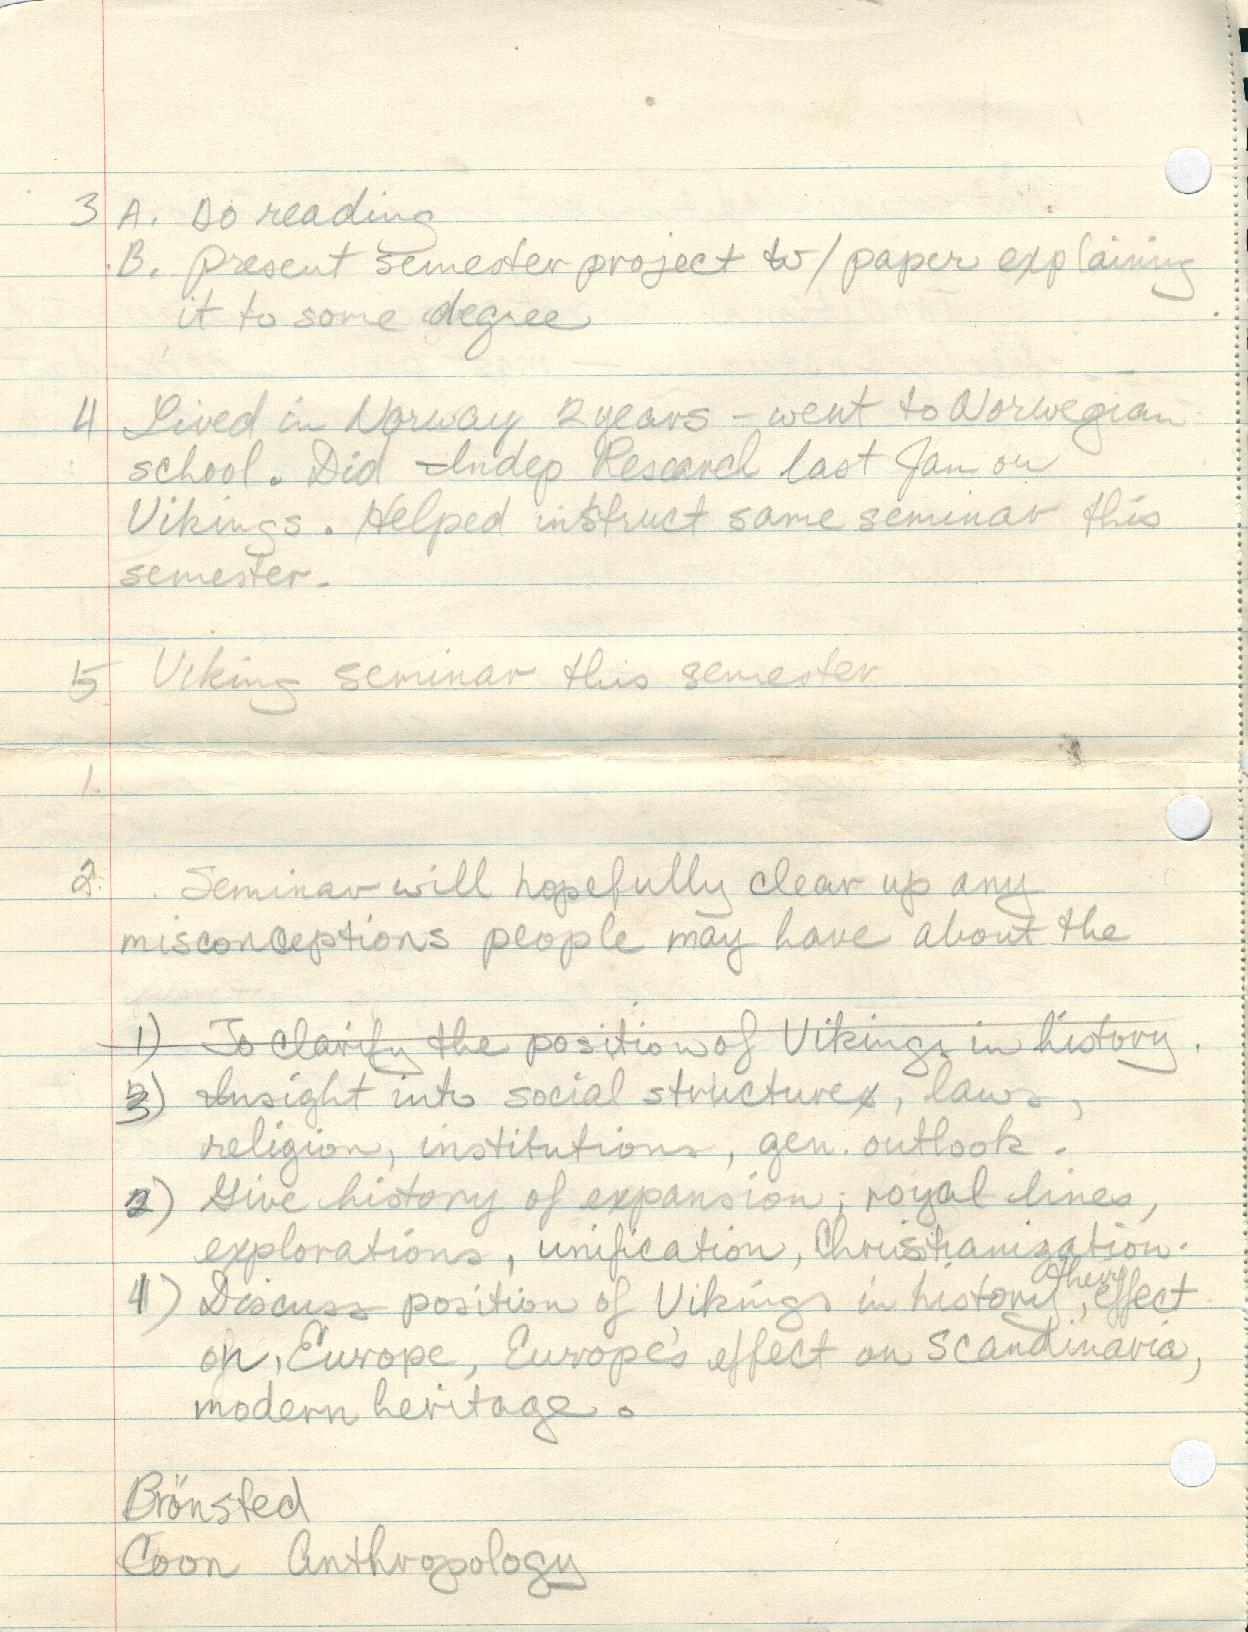 3 A. Do reading
B. Present semester project w/ paper explaining
it to some degree
4 Lived in Norway 2 years - went to Norwegian
school. Did Indep Research last Jan on
Vikings. Helped instruct same seminar this
semester.
5 Viking seminar this semester
1.
2. Seminar will hopefully clear up any
misconceptions people may have about the
1) To clarify the position of Vikings in history.
3) Insight into social structure, laws,
religion, institutions, gen. outlook.
2) Give history of expansion, royal lines,
explorations, unification, Christianization.
4) Discuss position of Vikings in history, their effect
on Europe, Europe's effect on Scandinavia,
modern heritage.
Brönsted
Coon Anthropology